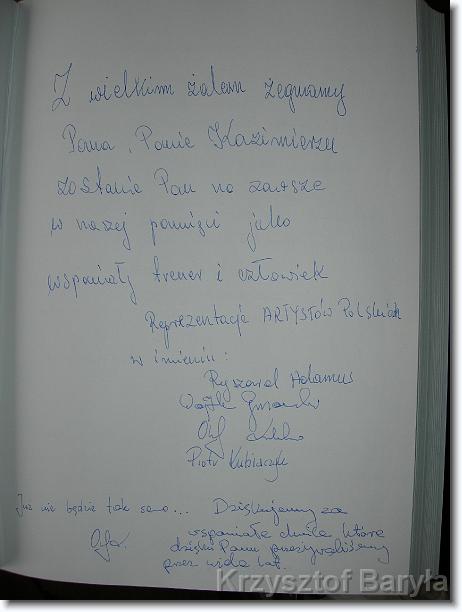 Z wielkim żalem żegnamy
Pana, Panie Kazimierzu
zostanie Pan na zawsze
w naszej pamięci jako
wspaniały trener i człowiek
Reprezentacja ARTYSTÓW Polskich
w imieniu:
Ryszard Adamus
Piotr Kubiaczyk
Już nie będzie tak samo... Dziękujemy za
wspaniałe chwile które
dzięki Panu przeżywaliśmy
przez wiele lat.
Krzysztof Baryła